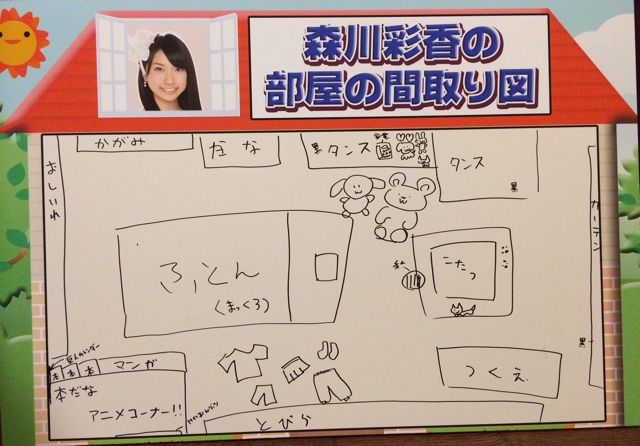 森川彩香の
部屋の間取り図
かがみ
だな
黒
タンス
タンス
黒
おしいれ
カーテン
黒
ふとん
(まっくろ)
私
こたつ
本
本
本
マンガ
本だな
アニメコーナー!!
つくえ
とびら